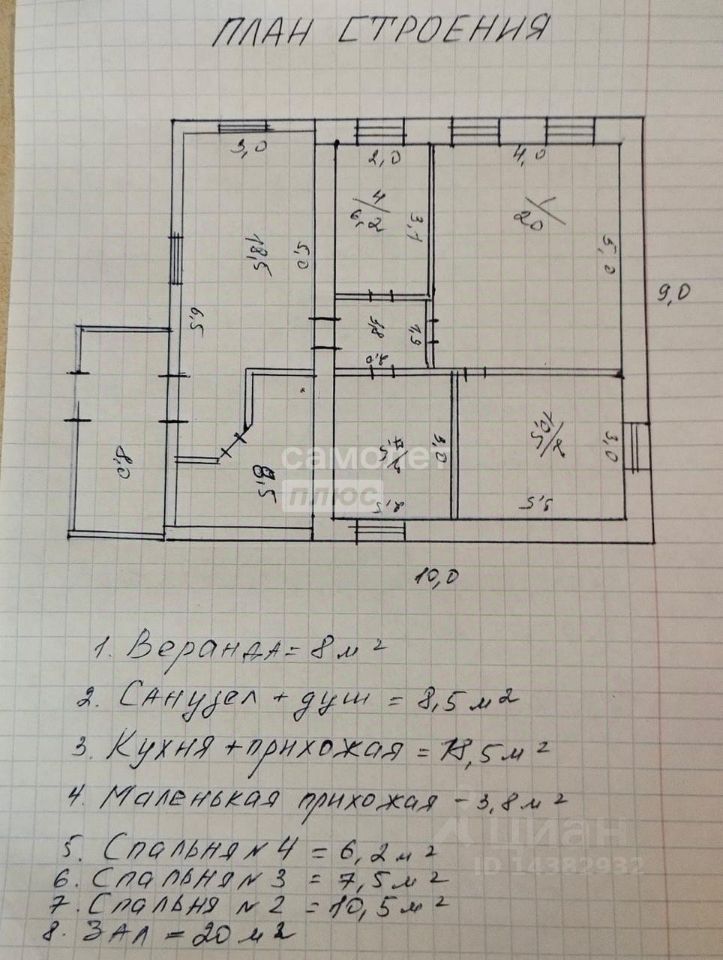 ПЛАН СТРОЕНИЯ
3,0
2,0
4,0
4/6,2
3,1
1/20
18,5
5,0
5,0
9,0
6,5
3,8
1,9
2,0
8,0
8,5
3/7,5
3,0
2/10,5
3,0
2,5
3,5
самолет
плюс
10,0
1. Веранда = 8 м²
2. Санузел + душ = 8,5 м²
3. Кухня + прихожая = 18,5 м²
4. Маленькая прихожая - 3,8 м²
5. Спальня № 4 = 6,2 м²
6. Спальня № 3 = 7,5 м²
7. Спальня № 2 = 10,5 м²
8. Зал = 20 м²
циан
ID 14382932